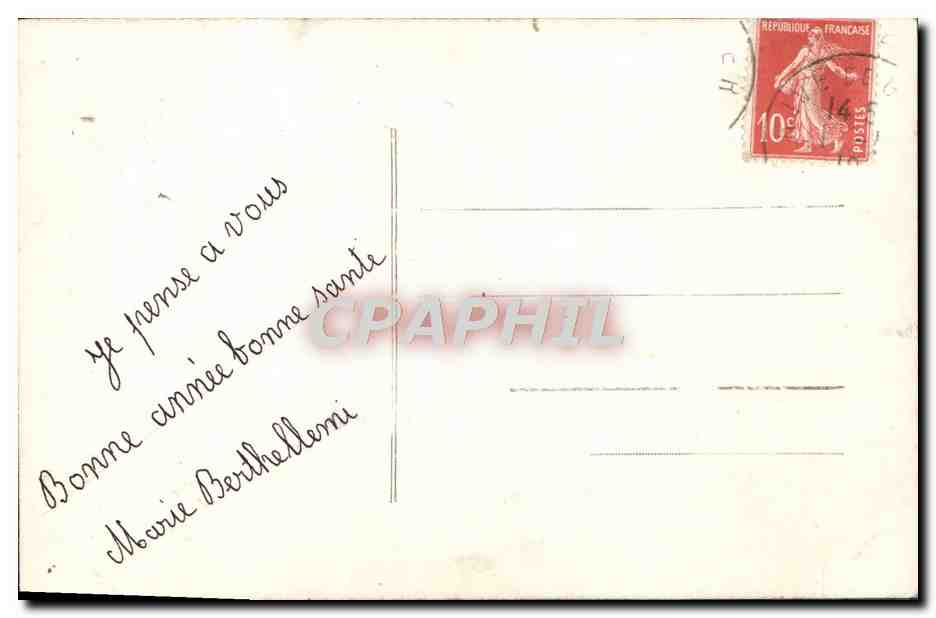 RÉPUBLIQUE FRANÇAISE
10c
POSTES
14
Je pense a vous
Bonne année bonne sante
Marie Berthellemi
CPAPHIL